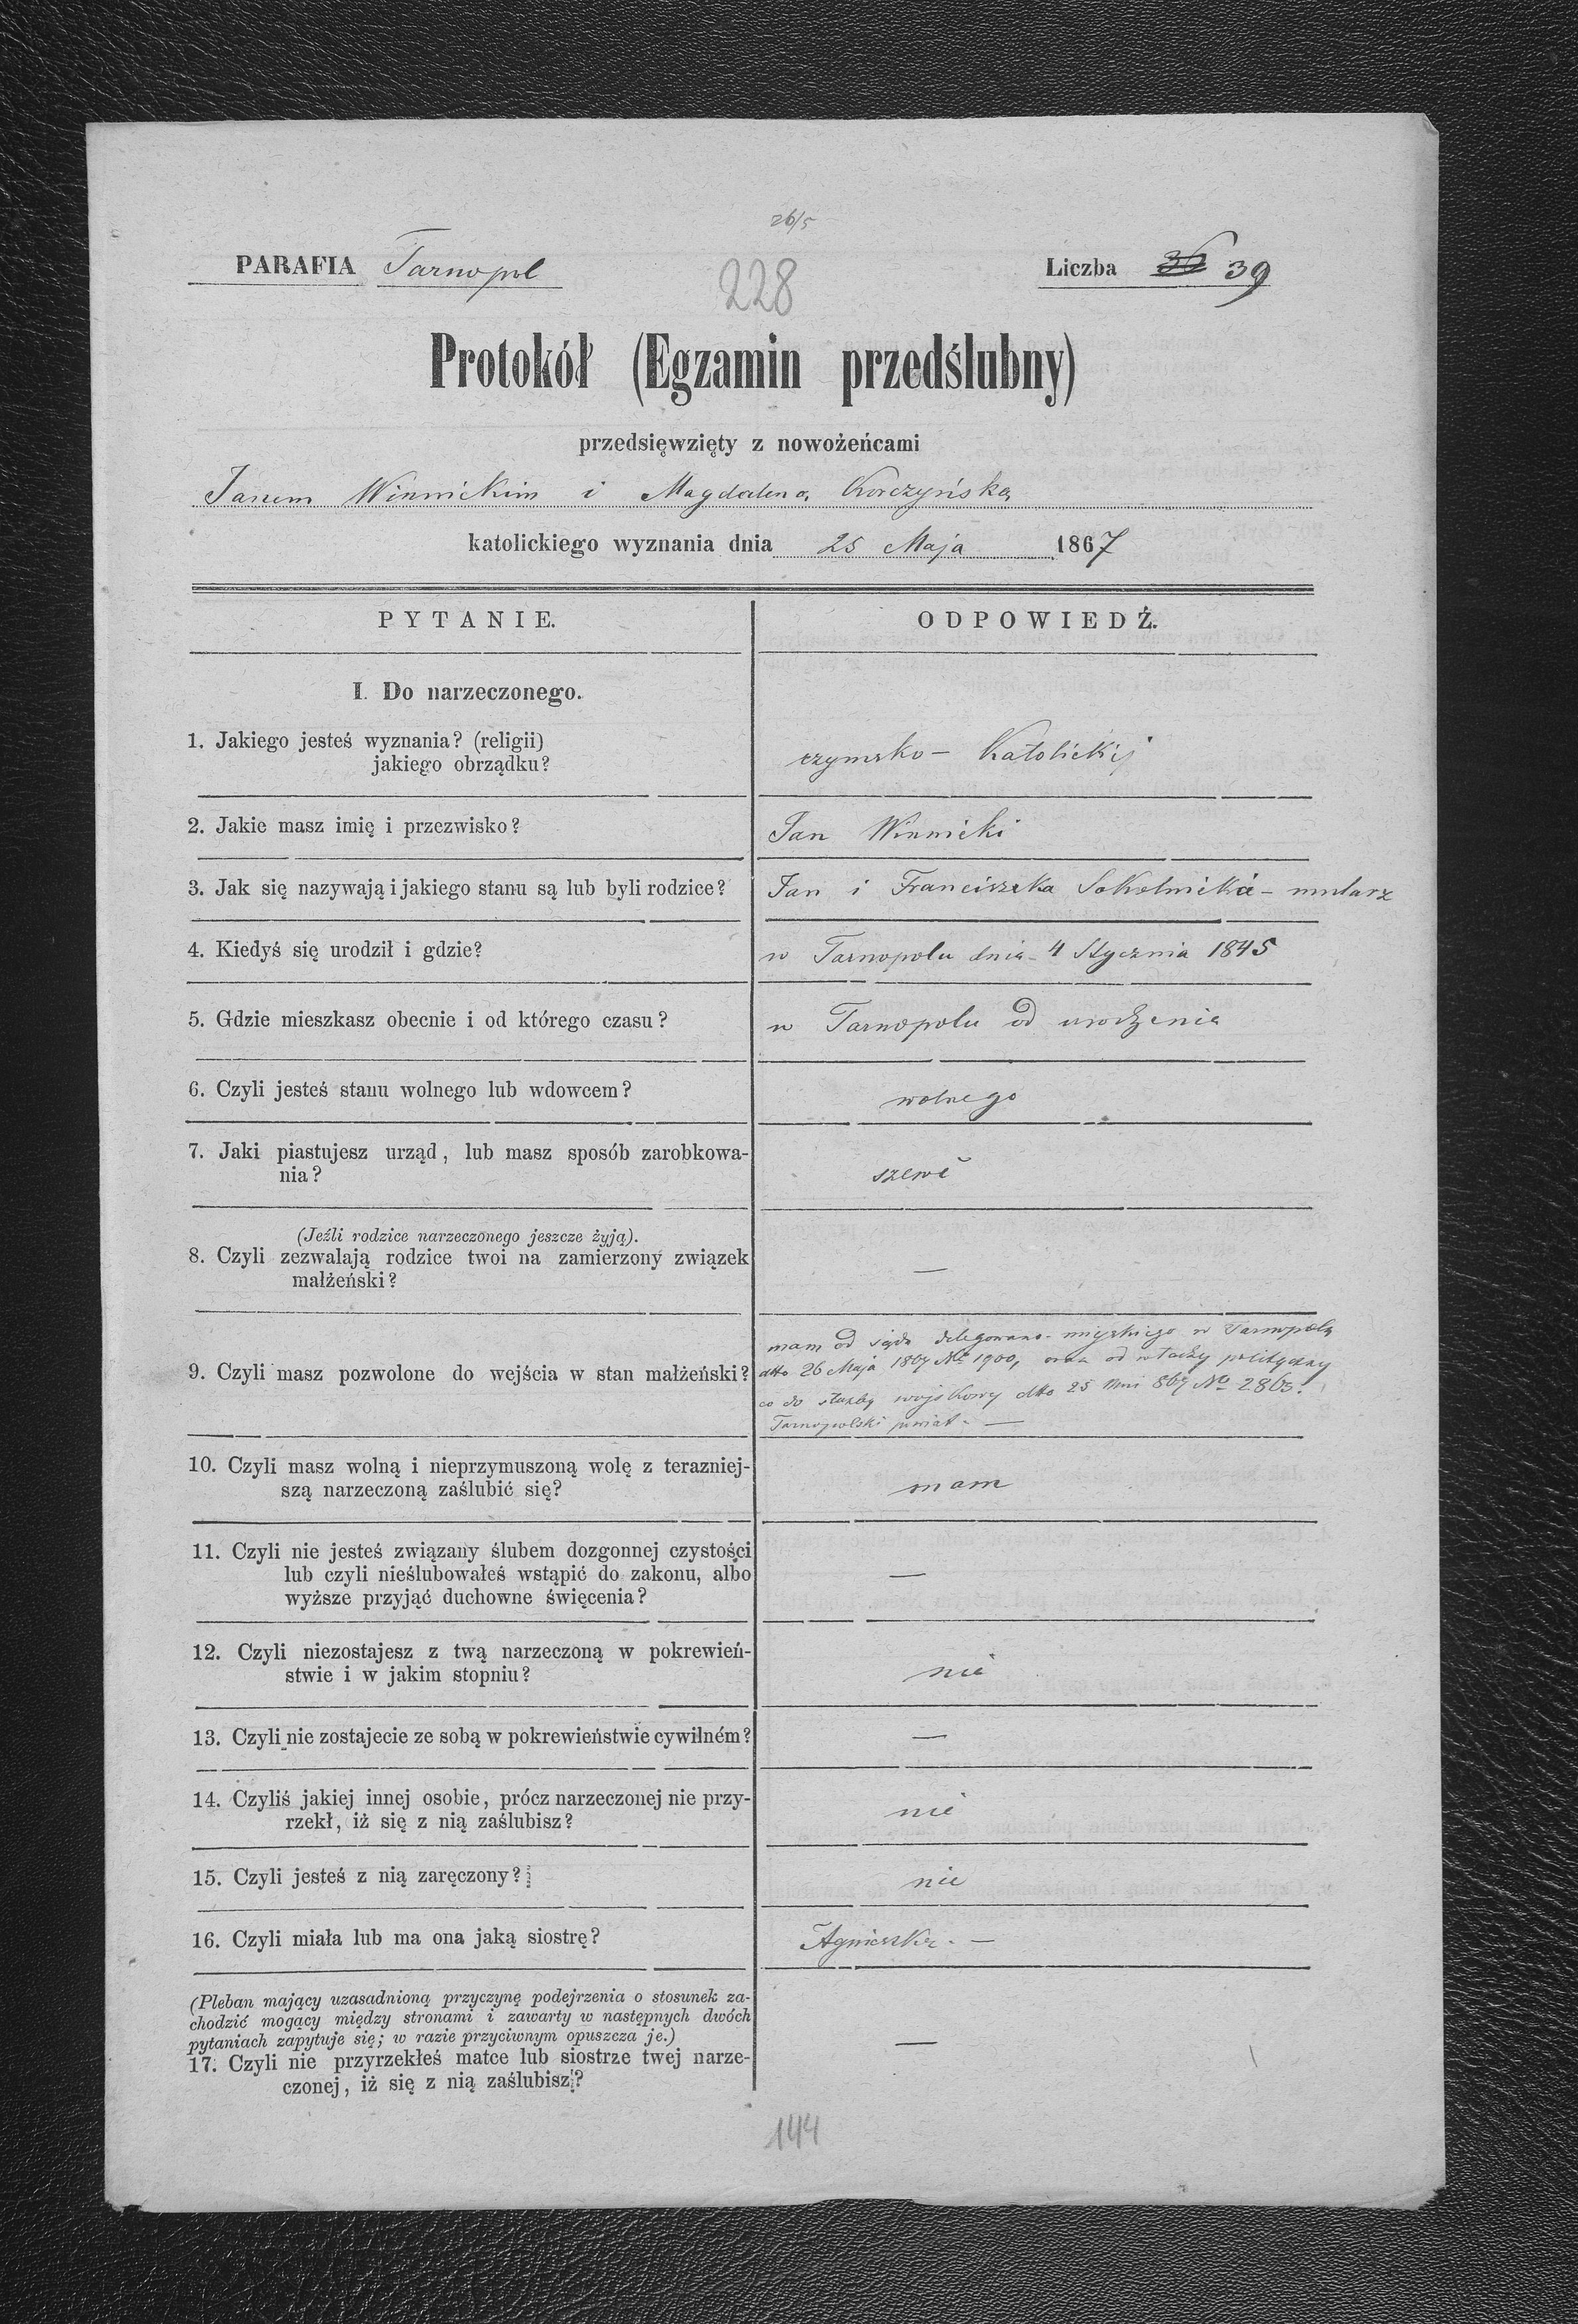 26/5
PARAFIA Tarnopol
228
Liczba 36 39
Protokół (Egzamin przedślubny)
przedsięwzięty z nowożeńcami
Janem Winnickim i Magdaleną Korczyńską
katolickiego wyznania dnia 25 Maja 1867
PYTANIE.
ODPOWIEDŹ.
I. Do narzeczonego.
1. Jakiego jesteś wyznania? (religii)
jakiego obrządku?
rzymsko - Katolickiej
2. Jakie masz imię i przezwisko?
Jan Winnicki
3. Jak się nazywają i jakiego stanu są lub byli rodzice?
Jan i Franciszka Sokolnicka - mularz
4. Kiedyś się urodził i gdzie?
w Tarnopolu dnia 4 Stycznia 1845
5. Gdzie mieszkasz obecnie i od którego czasu?
w Tarnopolu od urodzenia
6. Czyli jesteś stanu wolnego lub wdowcem?
wolnego
7. Jaki piastujesz urząd, lub masz sposób zarobkowa-
nia?
szewc
(Jeźli rodzice narzeczonego jeszcze żyją).
8. Czyli zezwalają rodzice twoi na zamierzony związek
małżeński?
—
9. Czyli masz pozwolone do wejścia w stan małżeński?
mam od sądu delegowano-miejskiego w Tarnopolu
dtto 26 Maja 1867 No 1900, oraz od władzy polityczny
co do służby wojskowy dtto 25 867 No 2865.
Tarnopolski powiat. —
10. Czyli masz wolną i nieprzymuszoną wolę z terazniej-
szą narzeczoną zaślubić się?
mam
11. Czyli nie jesteś związany ślubem dozgonnej czystości
lub czyli nieślubowałeś wstąpić do zakonu, albo
wyższe przyjąć duchowne święcenia?
—
12. Czyli niezostajesz z twą narzeczoną w pokrewień-
stwie i w jakim stopniu?
nie
13. Czyli nie zostajecie ze sobą w pokrewieństwie cywilném?
—
14. Czyliś jakiej innej osobie, prócz narzeczonej nie przy-
rzekł, iż się z nią zaślubisz?
nie
15. Czyli jesteś z nią zaręczony?
nie
16. Czyli miała lub ma ona jaką siostrę?
Agnieszka. —
(Pleban mający uzasadnioną przyczynę podejrzenia o stosunek za-
chodzić mogący między stronami i zawarty w następnych dwóch
pytaniach zapytuje się; w razie przyciwnym opuszcza je.)
17. Czyli nie przyrzekłeś matce lub siostrze twej narze-
czonej, iż się z nią zaślubisz?
—
144